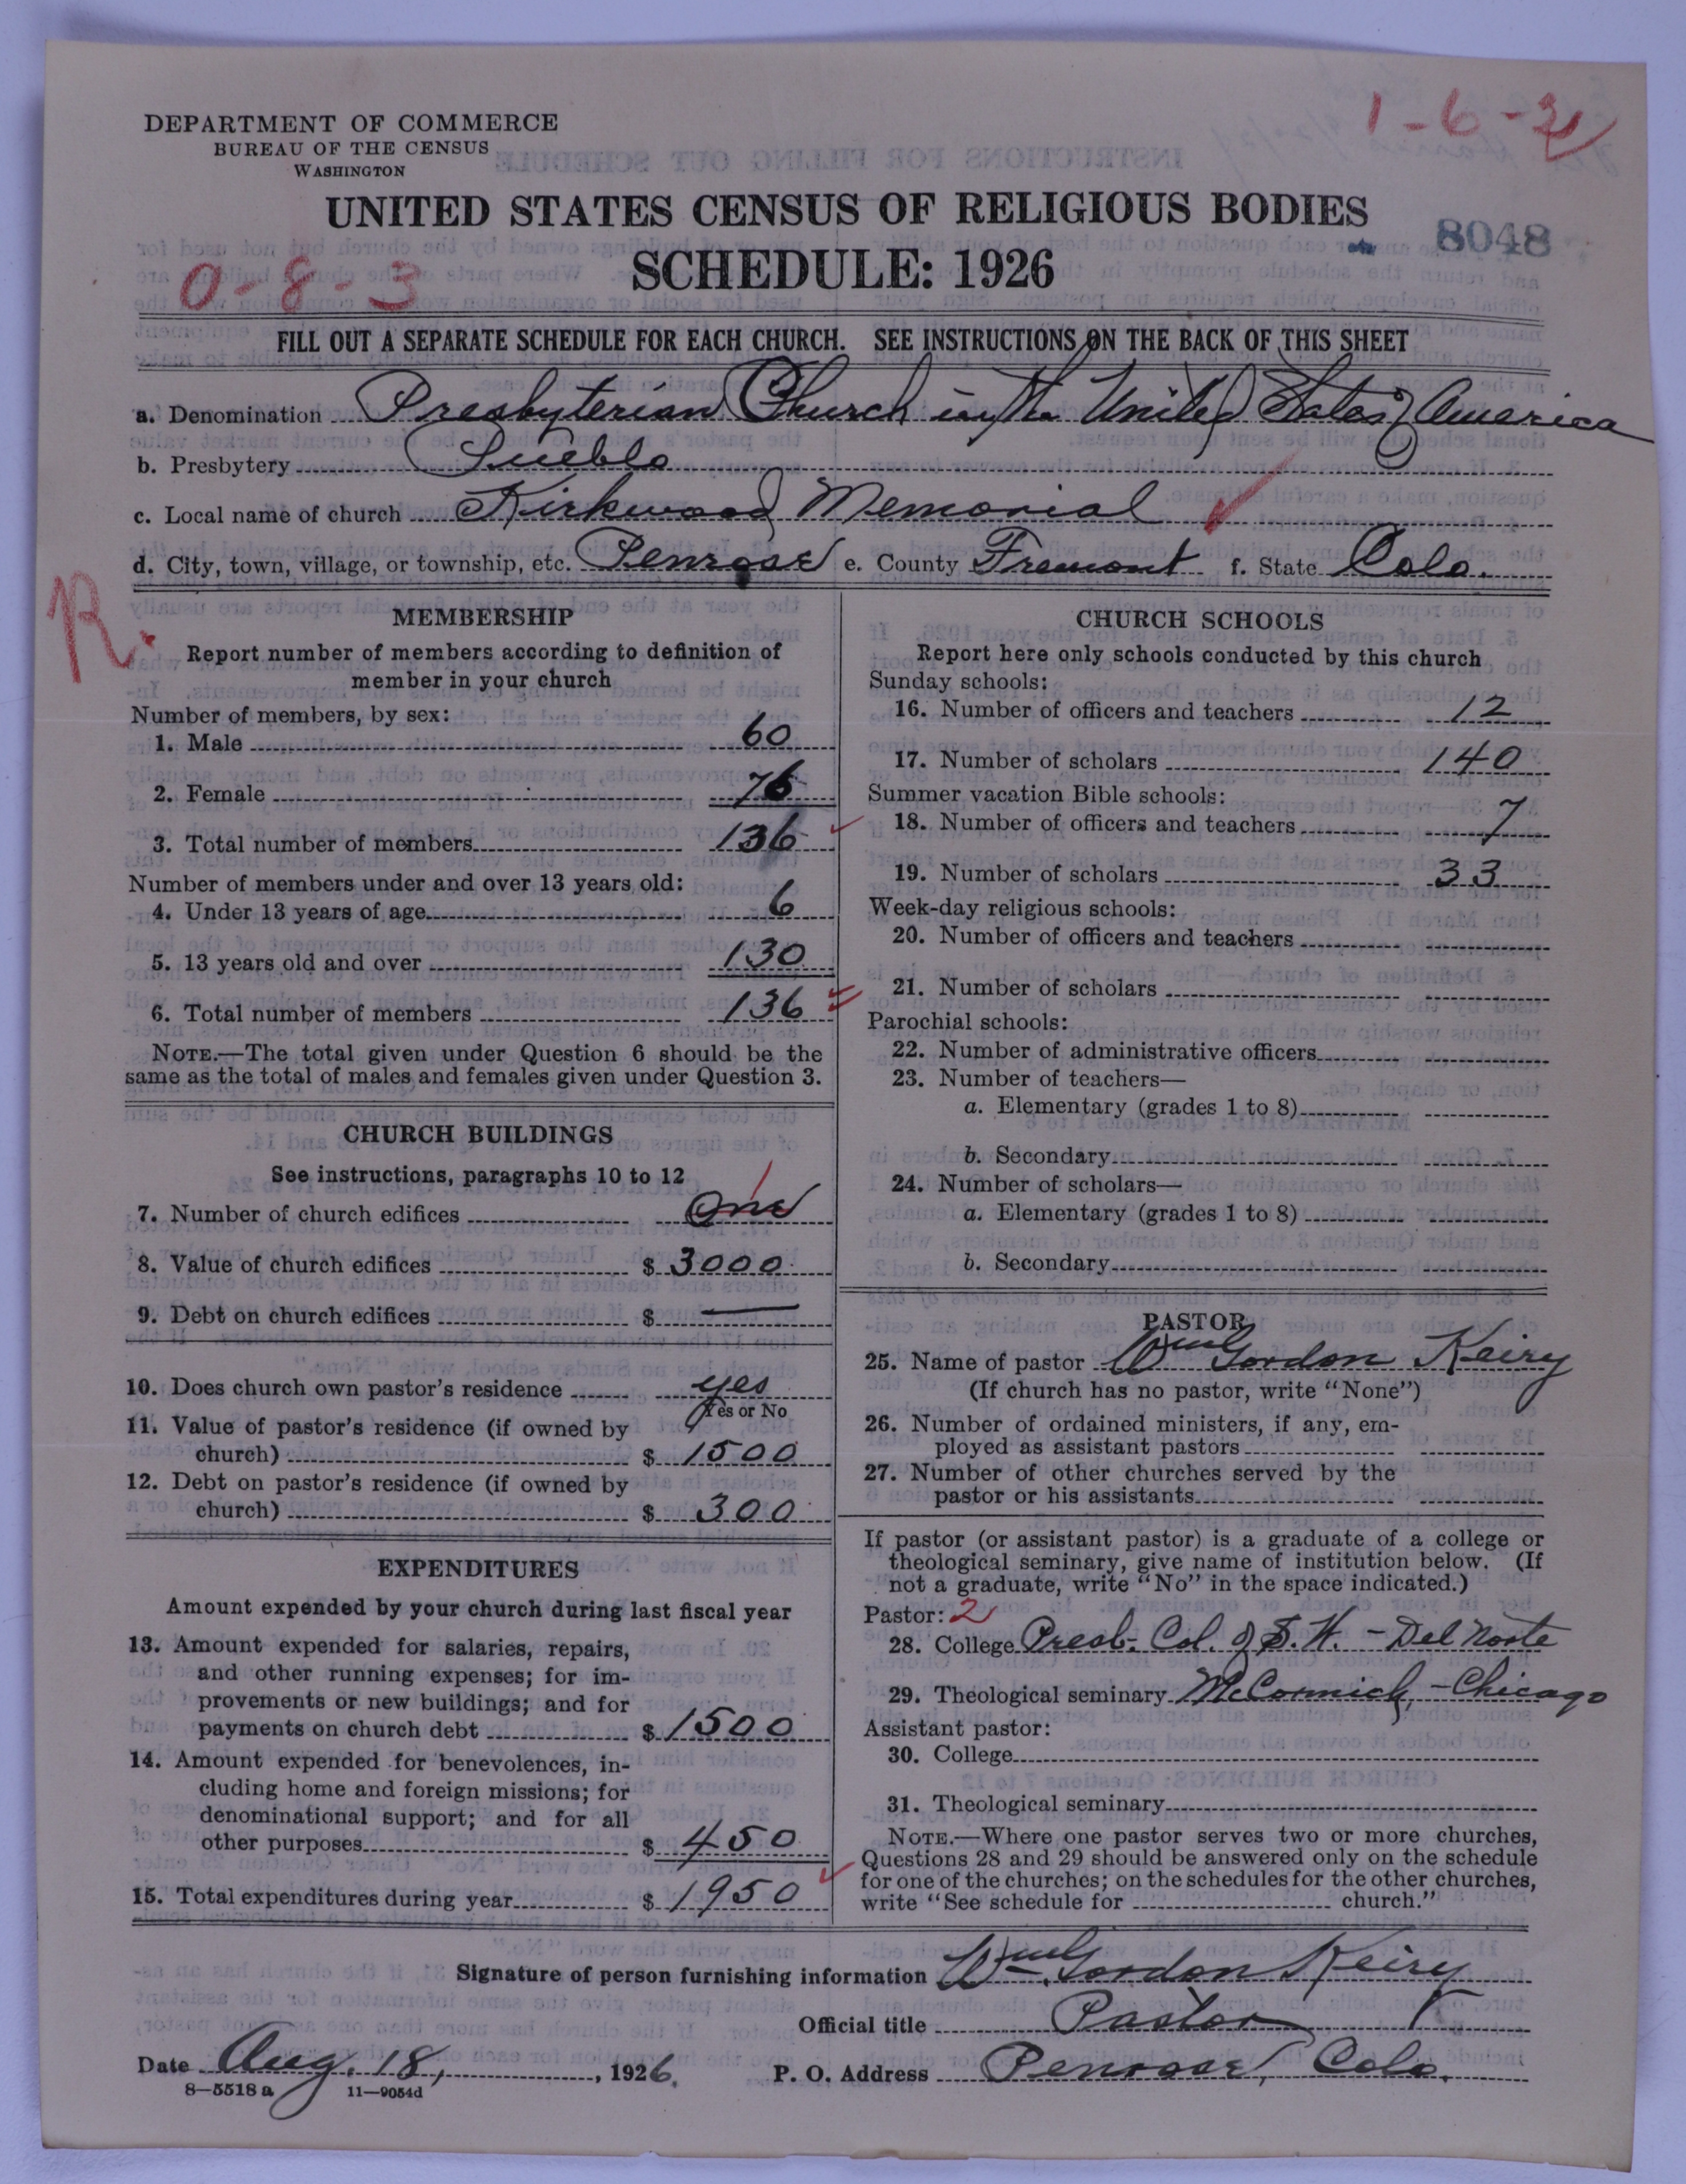 DEPARTMENT OF COMMERCE
BUREAU OF THE CENSUS
WASHINGTON
1-6-2
UNITED STATES CENSUS OF RELIGIOUS BODIES
8048
SCHEDULE: 1926
0-8-3
FILL OUT A SEPARATE SCHEDULE FOR EACH CHURCH. SEE INSTRUCTIONS ON THE BACK OF THIS SHEET
a. Denomination Presbyterian Church in the United States of America
b. Presbytery Pueblo
c. Local name of church Kirkwood Memorial
d. City, town, village, or township, etc. Penrose e. County Fremont f. State Colo.
R.
MEMBERSHIP
Report number of members according to definition of
member in your church
Number of members, by sex:
1. Male 60
2. Female 76
3. Total number of members 136
Number of members under and over 13 years old:
4. Under 13 years of age 6
5. 13 years old and over 130
6. Total number of members 136
NOTE.—The total given under Question 6 should be the
same as the total of males and females given under Question 3.
CHURCH BUILDINGS
See instructions, paragraphs 10 to 12
1
7. Number of church edifices One
8. Value of church edifices $ 3000
9. Debt on church edifices $ —
10. Does church own pastor's residence yes
Yes or No
11. Value of pastor's residence (if owned by
church) $ 1500
12. Debt on pastor's residence (if owned by
church) $ 300
EXPENDITURES
Amount expended by your church during last fiscal year
13. Amount expended for salaries, repairs,
and other running expenses; for im-
provements or new buildings; and for
payments on church debt $ 1500
14. Amount expended for benevolences, in-
cluding home and foreign missions; for
denominational support; and for all
other purposes $ 450
15. Total expenditures during year $ 1950
CHURCH SCHOOLS
Report here only schools conducted by this church
Sunday schools:
16. Number of officers and teachers 12
17. Number of scholars 140
Summer vacation Bible schools:
18. Number of officers and teachers 7
19. Number of scholars 33
Week-day religious schools:
20. Number of officers and teachers
21. Number of scholars
Parochial schools:
22. Number of administrative officers
23. Number of teachers—
a. Elementary (grades 1 to 8)
b. Secondary
24. Number of scholars—
a. Elementary (grades 1 to 8)
b. Secondary
PASTOR
25. Name of pastor Wm Gordon Keiry
(If church has no pastor, write "None")
26. Number of ordained ministers, if any, em-
ployed as assistant pastors
27. Number of other churches served by the
pastor or his assistants
If pastor (or assistant pastor) is a graduate of a college or
theological seminary, give name of institution below. (If
not a graduate, write "No" in the space indicated.)
Pastor: 2
28. College Presb. Col. of S.W. - Del Norte
29. Theological seminary McCormick, - Chicago
Assistant pastor:
30. College
31. Theological seminary
NOTE.—Where one pastor serves two or more churches,
Questions 28 and 29 should be answered only on the schedule
for one of the churches; on the schedules for the other churches,
write "See schedule for church."
Signature of person furnishing information Wm Gordon Keiry
Official title Pastor
Date Aug. 18, 1926. P. O. Address Penrose, Colo.
8-5518 a 11-9054d